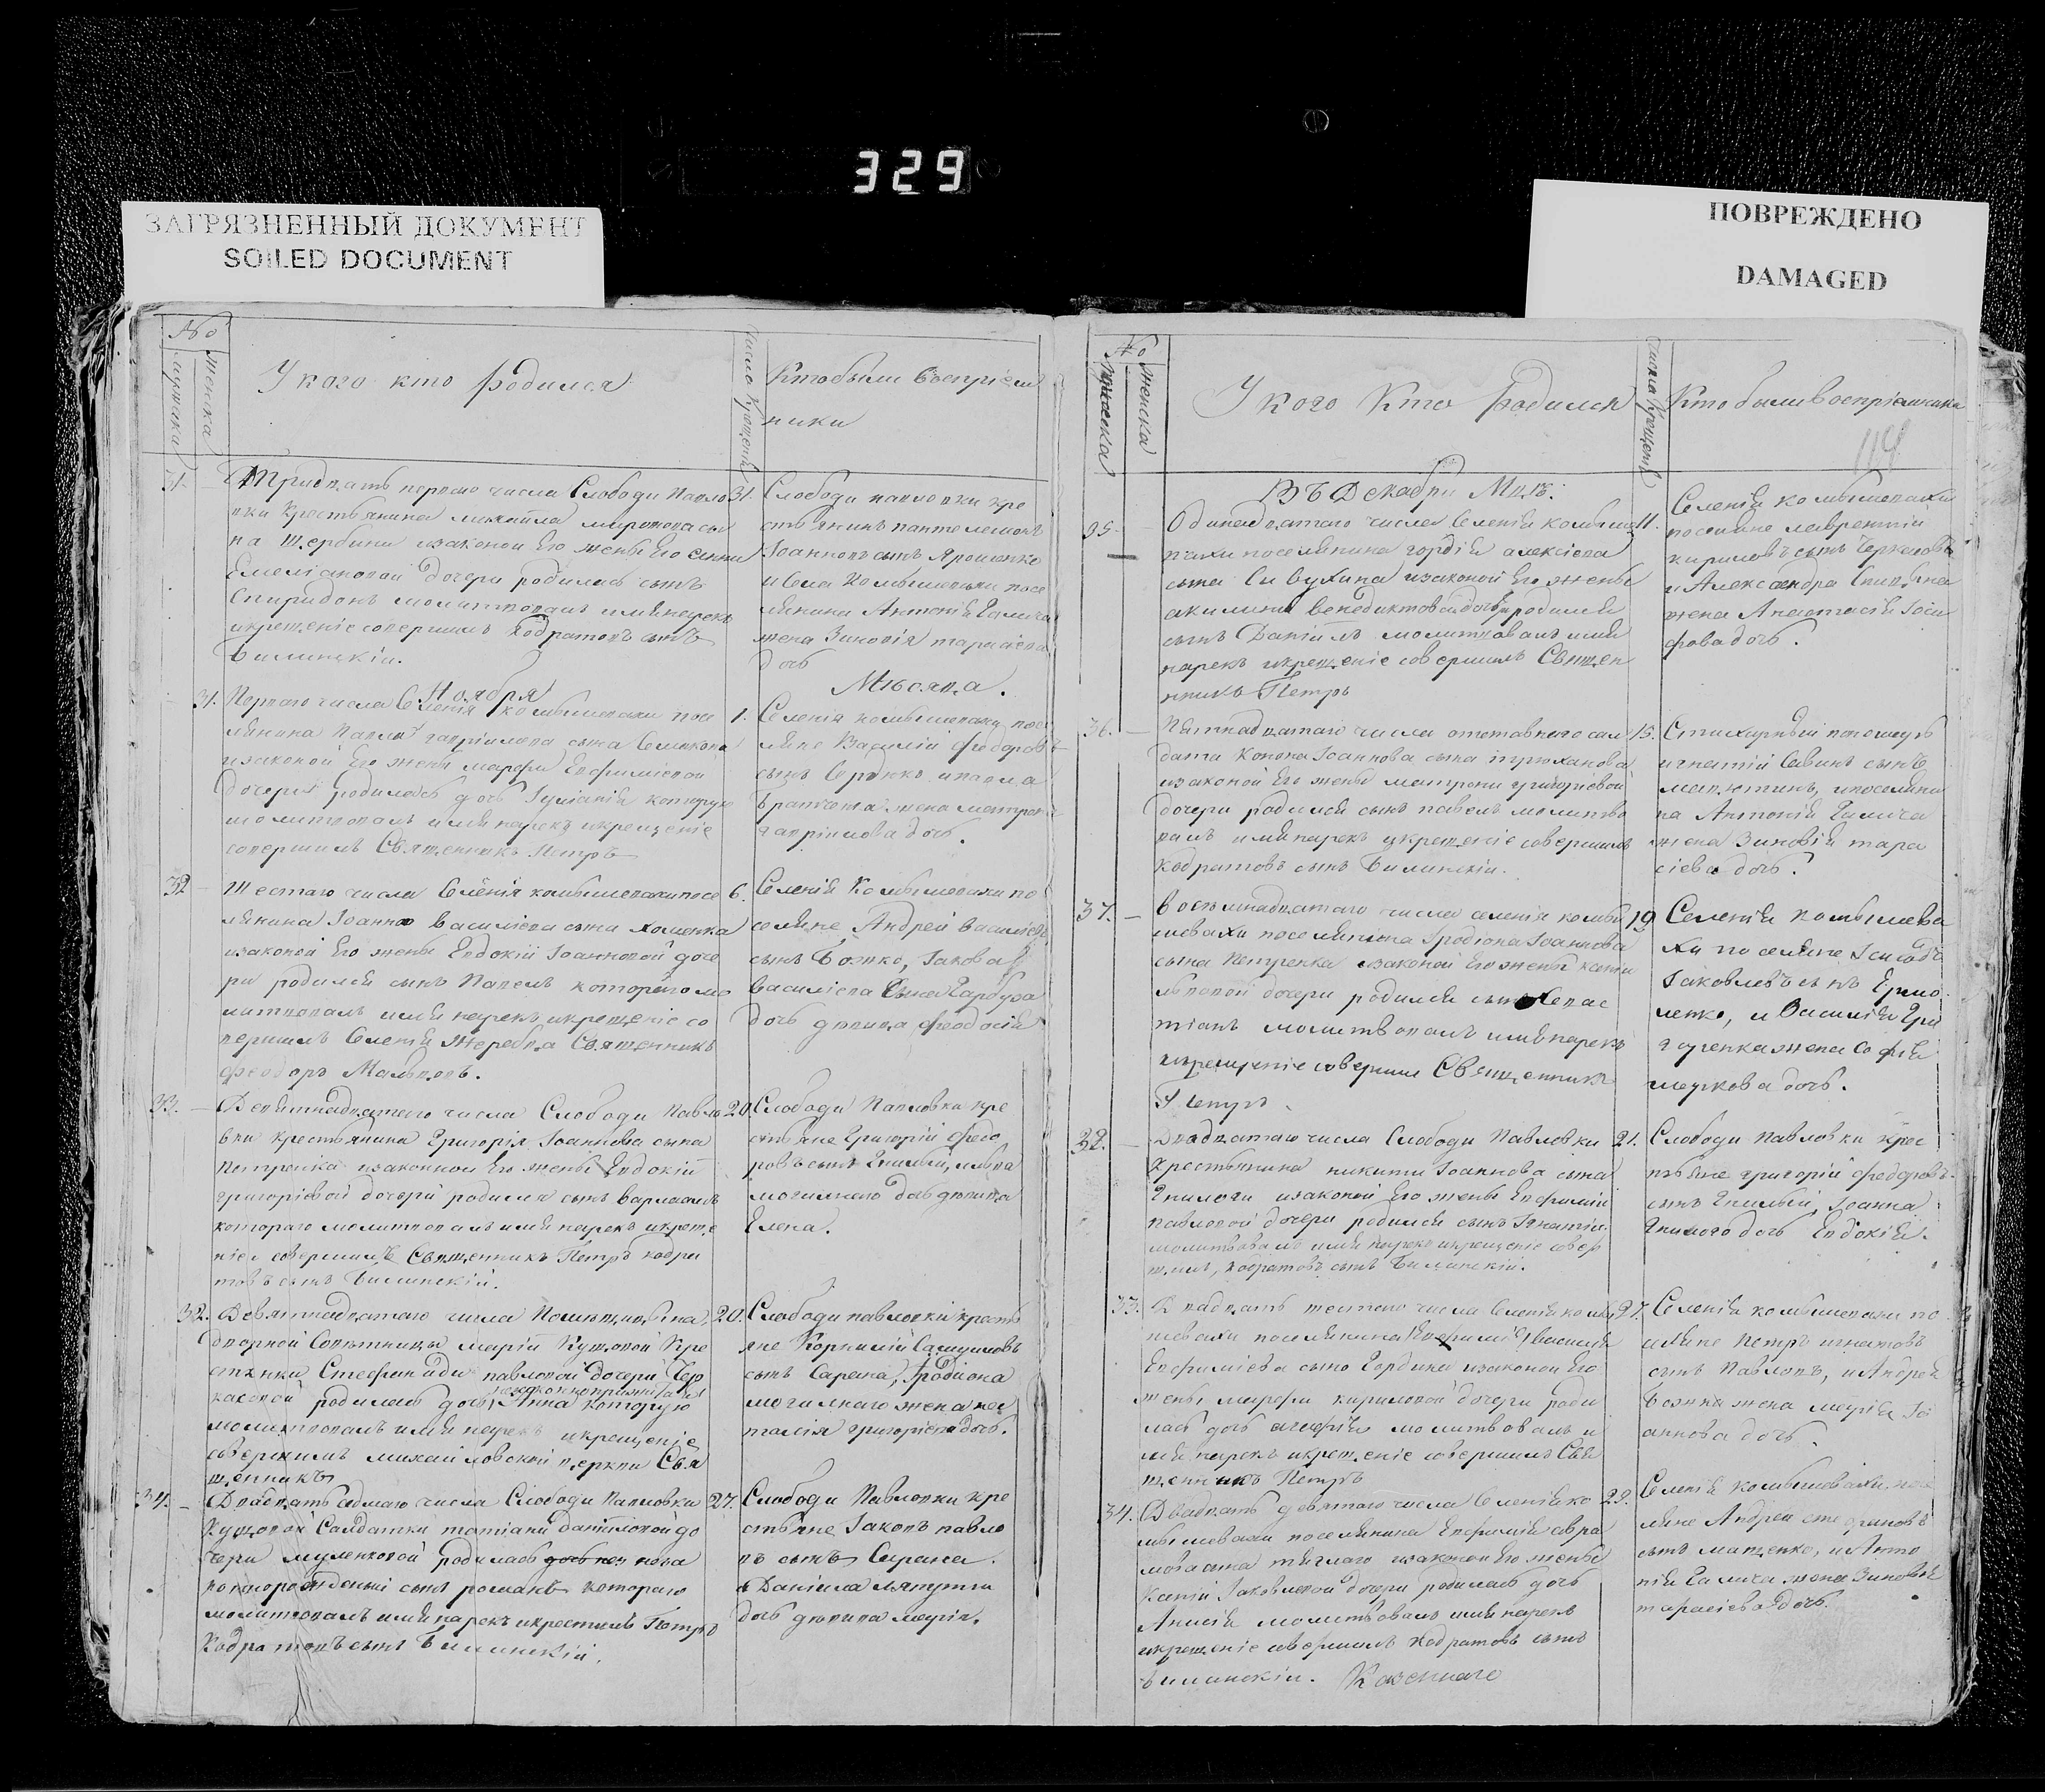 329
ЗАГРЯЗНЕННЫЙ ДОКУМЕНТ
SOILED DOCUMENT
ПОВРЕЖДЕНО
DAMAGED
№
мужеска
женска
У кого кто родился
Число крещенія
Кто были воспріем
ники
31.
Тридцать перваго числа Слободи Павло
вки крестьянина михаила миронова сы
на Щербини изаконой Его жены
Емеліановой дочери родился сынъ
Спиридонъ молитвовалъ имя нарекъ
икрещеніе совершилъ Кодратовъ сынъ
Билинскій.
31.
Слободи павловки кре
стьянинъ пантелемонъ
Іоанновъ сынъ Ярошенко
посе
лянина Антонія Галича
жена Зиновія тарасіева
дочь
Ноября
Мѣсяца.
31.
Перваго числа Селенія комышевахи посе
лянина Павла гавріилова сына
изаконой Его жены марфи Евфиміевой
дочери родилась дочь Іуліанія которую
молитвовалъ имя нарекъ икрещеніе
совершилъ Священникъ Петръ
1.
Селенія комышевахи посе
ляне Василій Феодоровъ
сынъ Сердюкъ ипавла
жена матрона
гавріилова дочь.
32
Шестаго числа Селенія комышевахи посе
лянина Іоанна василіева сына Хоменка
изаконой Его жены Евдокіи Іоанновой доче
ри родился сынъ Павелъ котораго мо
литвовалъ имя нарекъ икрещеніе со
вершилъ Селенія Жеребца Священникъ
феодоръ Мальцовъ.
6.
Селенія Комышевахи по
селяне Андрей василіевъ
сынъ Божко, Іакова
василіева сына Гарбуза
дочь дѣвица феодосія
33.
Девятнадцатаго числа Слободи Павло
вки крестьянина Григорія Іоаннова сына
Петренка изаконной Его жены Евдокіи
григоріевой дочери родился сынъ варлаамъ
котораго молитвовалъ имя нарекъ икреще
ніе совершилъ Священникъ Петръ кодра
товъ сынъ Билинскій.
20.
Слободи Павловки кре
стьяне Григорій федо
ровъ сынъ Гнилый, ильва
могилнаго дочь дѣвица
Елена.
32.
Девятнадцатаго числа Помѣщицы
дворной Совѣтницы маріи Куцовой Кре
стянки Стефаниди павловой дочери Чер
касовой родилась дочь незаконноприжитая Анна которую
молитвовалъ имя нарекъ икрещеніе
совершилъ михаиловской церкви Свя
щенникъ
20.
Слободи павловки кресть
яне Корнилій Самуиловъ
сынъ Сарана, Іродіона
могилнаго жена
григоріева дочь.
34.
Двадцать седмаго числа Слободи Павловки
Куцовой Салдатки татіани даніиловой до
чери муленковой родилась
рожденый сынъ романъ котораго
молитвовалъ имя нарекъ икрестилъ Петръ
Кодратовъ сынъ Билинскій.
27.
Слободи Павловки кре
стьяне Іаковъ павло
въ сынъ Сарана.
Даніила
дочь дѣвица марія.
№
мужеска
женска
У кого Кто родился
Число крещенія
Кто были воспріемники
119
ВЪ Декабри Мцѣ.
35.
Одинадцатаго числа селенія комыше
вахи поселянина гордія алексіева
сына Сивухина изаконой Его жены
акилины венедиктовой дочери родился
сынъ Даніилъ молитвовалъ имя
нарекъ икрещеніе совершилъ Священ
никъ Петръ
11.
Селенія комышевахи
поселяне лаврентій
кириловъ сынъ Черкасовъ
и Александра
жена Анастасія Іоси
фова дочь.
36.
Пятнадцатаго числа отставнаго сал
дата Конона Іоаннова сына
изаконой Его жены матрони григоріевой
дочери родился сынъ павелъ молитво
валъ имя нарекъ икрещеніе совершилъ
кодратовъ сынъ Билинскій.
15.
Стихарный пономарь
игнатій Савинъ сынъ
ипоселяни
на Антонія Галича
жена Зиновія тара
сіева дочь.
37.
восемнадцатаго числа селенія комы
шевахи поселянина Іродіона Іоаннова
сына Петренка изаконой Его жены ксеніи
дочери родился сынъ Севас
тіанъ молитвовалъ имя нарекъ
икрещеніе совершилъ Священникъ
Петръ.
19
Селенія Комышева
хи поселяне Ісидоръ
Іаковлевъ сынъ Ермо
ленко, и Василія Гри
жена Софія
маркова дочь.
38.
Двадцатаго числа Слободи Павловки
Крестьянина никиты Іоаннова сына
Гнилоги изаконой Его жены Евфиміи
павловой дочери родился сынъ Игнатій
молитвовалъ имя нарекъ икрещеніе совер
шилъ, кодратовъ сынъ Билинскій.
21.
Слободи Павловки крес
тьяне григорій феодоровъ
сынъ Гнилый, Іоанна
Гнилого дочь Евдокія.
33.
Двадцать шестаго числа Селенія комы
шевахи поселянина василія
Евфиміева сына Гордика изаконой Его
жены марфи кириловой дочери роди
лась дочь агафія молитвовалъ и
мя нарекъ икрещеніе совершилъ Свя
щенникъ Петръ
27.
Селенія комышевахи по
селяне Петръ игнатовъ
сынъ Павловъ, иАндрея
Божка жена марія Іо
аннова дочь.
34.
Двадцать девятаго числа Селенія ко
мышевахи поселянина Евфимія авра
мова сына тяглаго изаконой Его жены
Ксеніи Іаковлевой дочери родилась дочь
Анисія молитвовалъ имя нарекъ
икрещеніе совершилъ кодратовъ сынъ
Билинскій.
29.
Селенія комышевахи посе
ляне Андрей стефановъ
сынъ мащенко, иАнто
нія Галича жена Зиновія
тарасіева дочь.